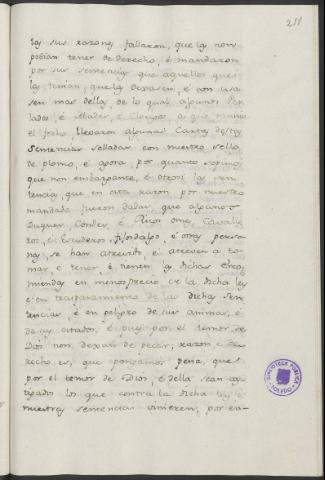 211
das sus razones fallaron, que las non
podian tener de derecho, é mandaron
por sus sentencias que aquellos que
las tenian, que las dexasen, é non usa
sen mas dellas, de lo qual algunos Per
lados, é Abades, é Clerigos, a que tannia
el fecho, llevaron algunas Cartas destas
Sentencias selladas con nuestro sello
de plomo, é agora, por quanto sopimos
que non embargante, é otrosi las sen
tencias, que en esta razon por nuestro
mandado fueron dadas, que algunos
Duques, Condes, é Ricos omes, Cavalle
ros, é Escuderos, fijosdalgo, é otras perso
nas se han atrevido, é atreven a to
mar, é tener, é tienen las dichas enco
miendas en menosprecio de la dicha ley
é en traspasamiento de las dichas sen
tencias, é en peligro de sus animas, é
de sus estados, é pues por el temor de
Dios non dexan de pecar, razon, é de
recho es, que pongamos pena, que
por el temor de Dios, é della sean cas
tigados los que contra la dicha ley é
nuestras sentencias vinieren, por en-
BIBLIOTECA PUBLICA
TOLEDO